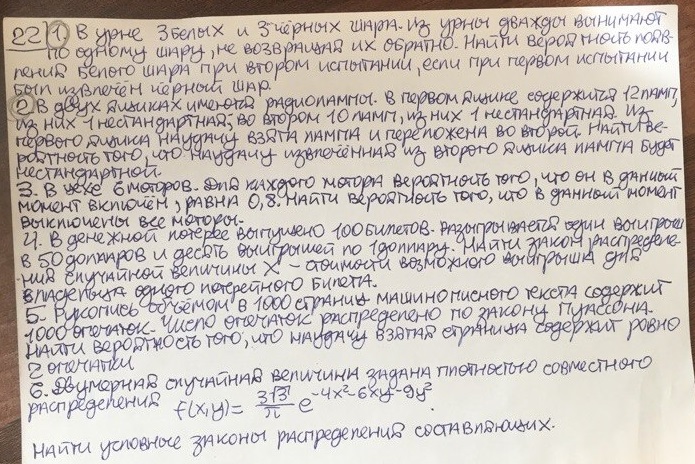 22 1. В урне 3 белых и 3 чёрных шара. Из урны дважды вынимают
по одному шару, не возвращая их обратно. Найти вероятность появ-
ления белого шара при втором испытании, если при первом испытании
был извлечён чёрный шар.
2. В двух ящиках имеются радиолампы. В первом ящике содержится 12 ламп,
из них 1 нестандартная; во втором 10 ламп, из них 1 нестандартная. Из
первого ящика наудачу взята лампа и переложена во второй. Найти ве-
роятность того, что наудачу извлечённая из второго ящика лампа будет
нестандартной.
3. В цехе 6 моторов. Для каждого мотора вероятность того, что он в данный
момент включён, равна 0,8. Найти вероятность того, что в данный момент
выключены все моторы.
4. В денежной лотерее выпущено 100 билетов. Разыгрывается один выигрыш
в 50 долларов и десять выигрышей по 1 доллару. Найти закон распределе-
ния случайной величины X – стоимости возможного выигрыша для
владельца одного лотерейного билета.
5. Рукопись объёмом в 1000 страниц машинописного текста содержит
1000 опечаток. Число опечаток распределено по закону Пуассона.
Найти вероятность того, что наудачу взятая страница содержит ровно
2 опечатки
6. Двумерная случайная величина задана плотностью совместного
распределения f(x,y) = 3√3/π e^(-4x²-6xy-9y²).
Найти условные законы распределения составляющих.